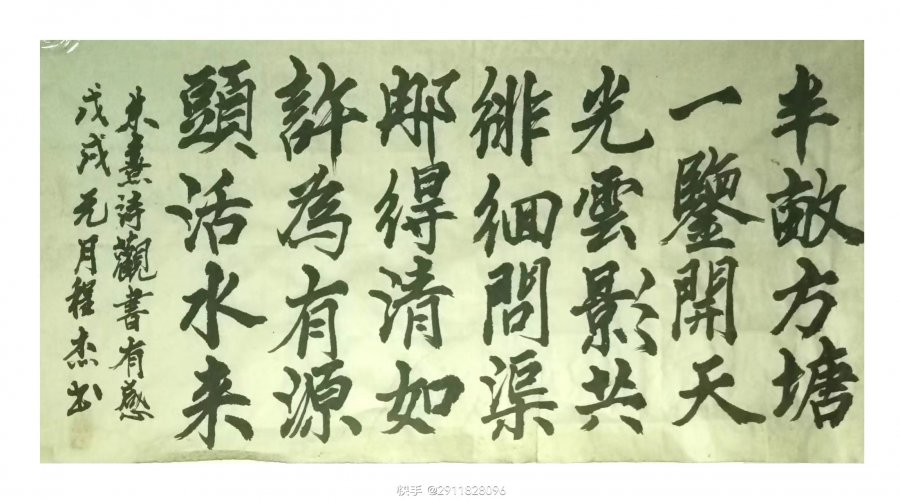 半畝方塘
一鑒開天
光雲影共
徘徊問渠
那得清如
許為有源
頭活水来
朱熹詩觀書有感
戊戌元月程杰书
快手 @2911828096